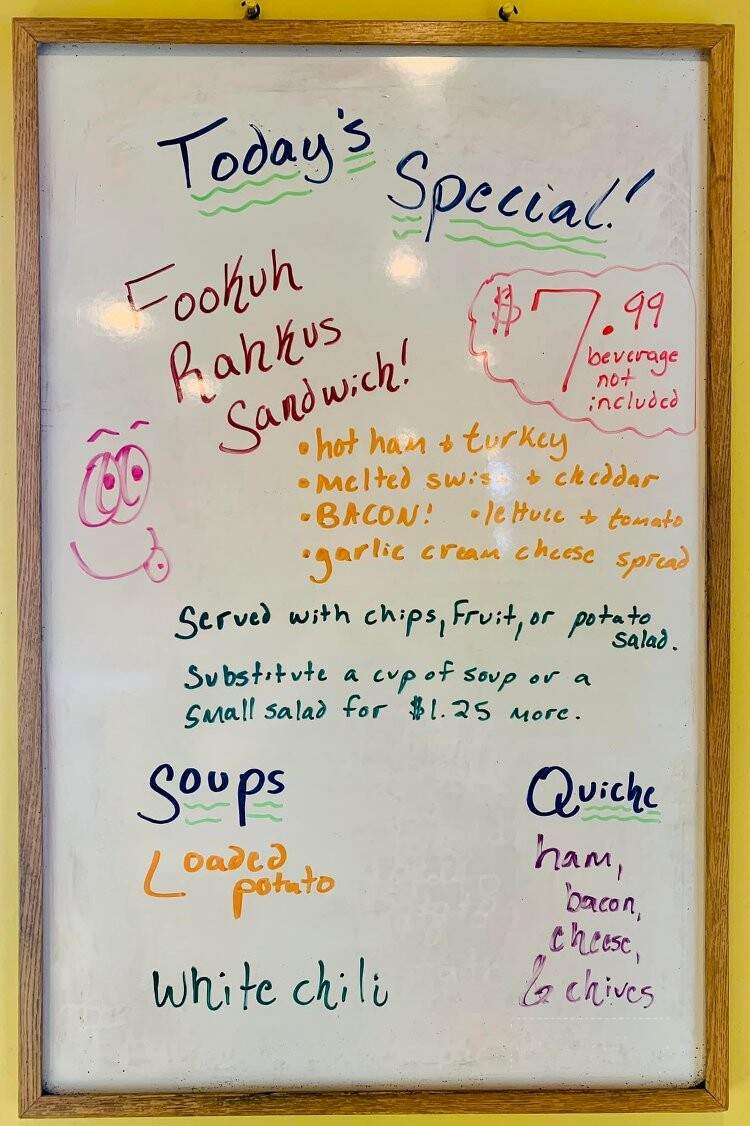 Today's
Special!
Fookuh
Rahkus
Sandwich!
$7.99
beverage
not
included
•hot ham + turkey
•melted swiss + cheddar
•BACON! •lettuce + tomato
•garlic cream cheese spread
Served with chips, fruit, or potato
salad.
Substitute a cup of soup or a
small salad for $1.25 more.
Soups
Loaded
potato
White chili
Quiche
ham,
bacon,
cheese,
& chives